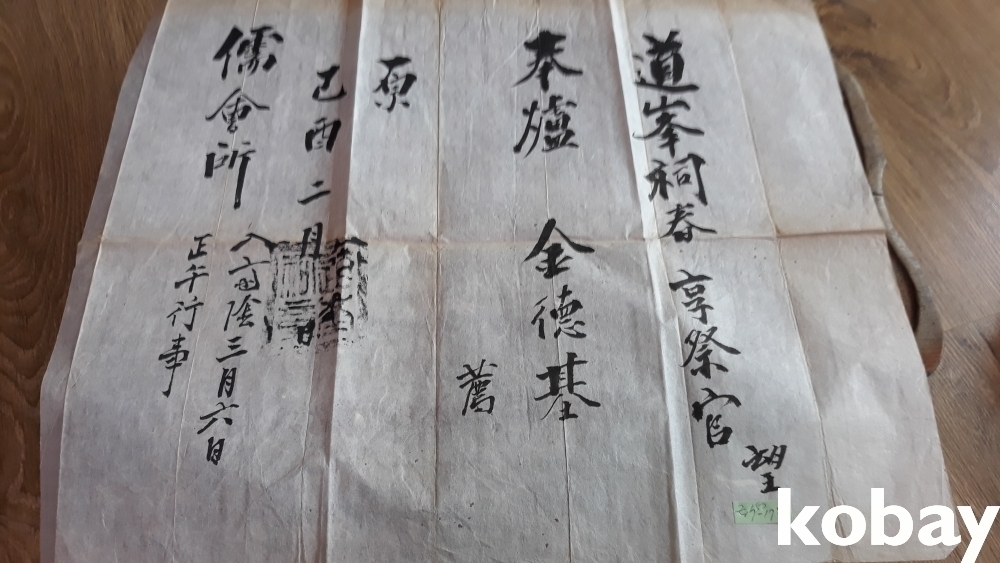 道峯祠春享祭官望
奉爐 金德基 薦
原
己酉二月 日
儒會所
入 陰三月六日
正午行事
kobay